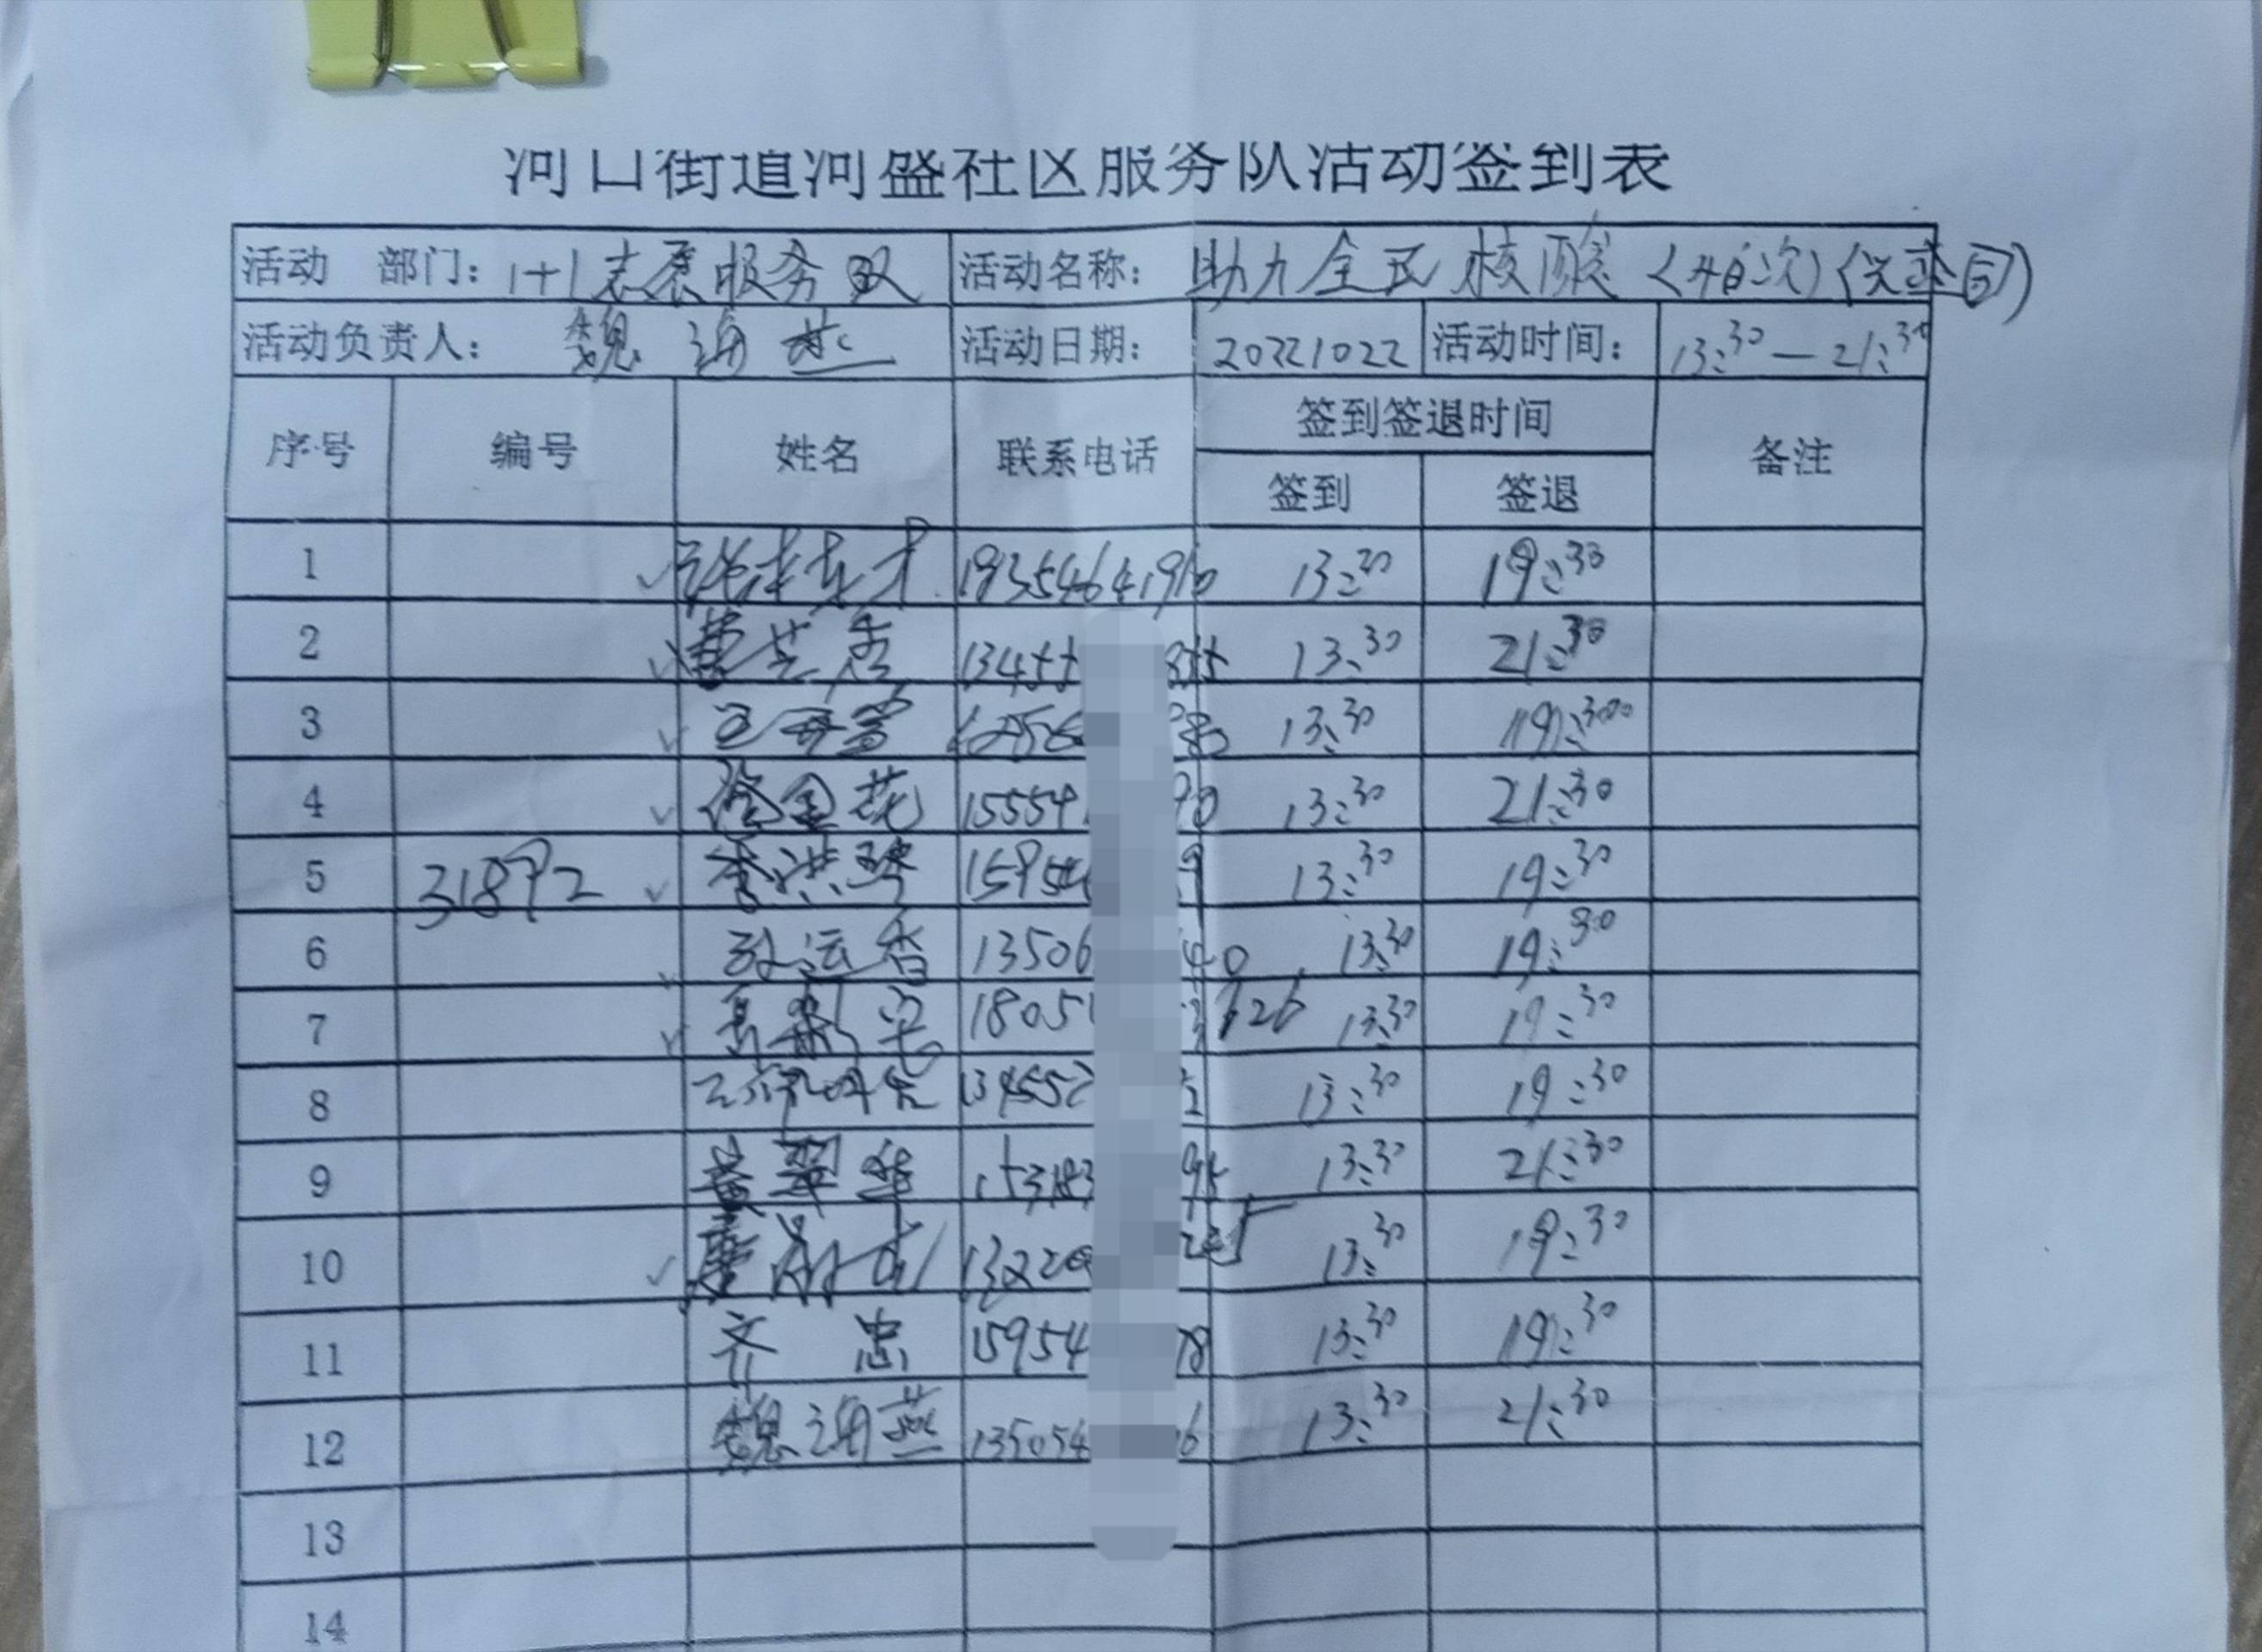 河口街道河盛社区服务队活动签到表
活动 部门: 1+1志愿服务队 活动名称: 助力全民核酸
活动负责人: 魏海燕 活动日期: 20221022 活动时间: 13:30—21:30
序号 编号 姓名 联系电话 签到签退时间 备注
签到 签退
1 19354641910 13:30 19:30
2 13455 855 13:30 21:30
3 13:30 19:30
4 金花 15554 90 13:30 21:30
5 31892 李洪琴 15954 9 13:30 19:30
6 运香 13506 40 13:30 19:30
7 1805 626 13:30 19:30
8 134552 2 13:30 19:30
9 黄翠华 153183 95 13:30 21:30
10 13220 13:30 19:30
11 齐 忠 15954 78 13:30 19:30
12 魏海燕 135054 16 13:30 21:30
13
14